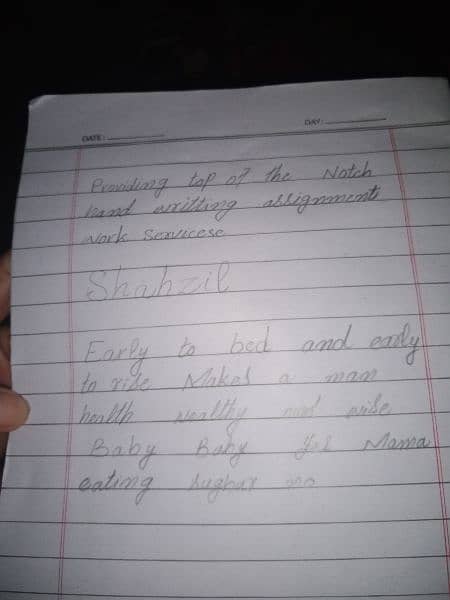 DAY:
DATE:
Providing top of the Notch
hand writting assignments
work Servicese
Shahzil
Early to bed and early
to rise Makes a man
health wealthy and wise
Baby Baby yes Mama
eating sughar no